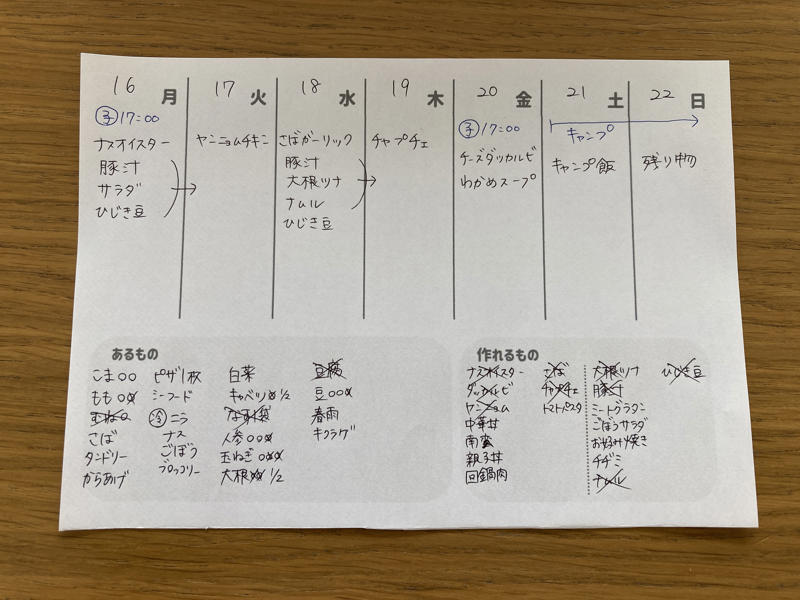 16 月
㋙17:00
ナスオイスター
豚汁
サラダ
ひじき豆
17 火
ヤンニョムチキン
18 水
さばガーリック
豚汁
大根ツナ
ナムル
ひじき豆
19 木
チャプチェ
20 金
17:00
チーズダッカルビ
わかめスープ
21 土
キャンプ
キャンプ飯
22 日
残り物
あるもの
こま○○
もも○○
むね○
さば
タンドリー
からあげ
ピザ1枚
シーフード
冷 ニラ
ナス
ごぼう
ブロッコリー
白菜
キャベツ○ 1/2
なす1袋
人参○○○
玉ねぎ○○○
大根○○ 1/2
豆腐
豆○○○
春雨
キクラゲ
作れるもの
ナスオイスター
ダッカルビ
ヤンニョム
中華丼
南蛮
親子丼
回鍋肉
さば
チャプチェ
トマトパスタ
大根ツナ
豚汁
ミートグラタン
ごぼうサラダ
お好み焼き
チヂミ
ナムル
ひじき豆